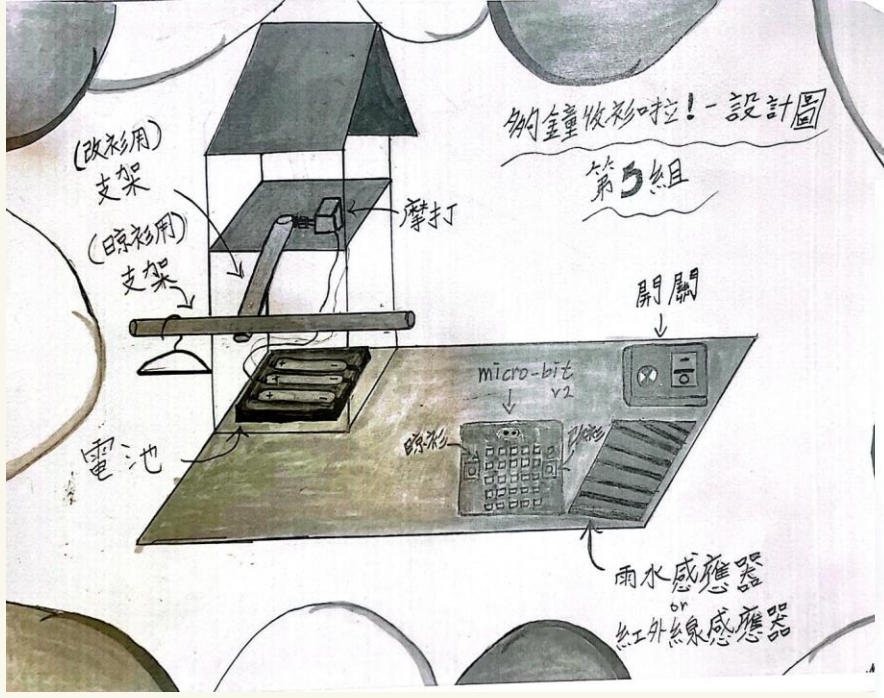 夠鐘收衫啦!-設計圖
第5組
(改衫用)
支架
摩打
(晾衫用)
支架
開關
micro-bit
v2
晾衫
收衫
電池
+ -
雨水感應器
or
紅外線感應器